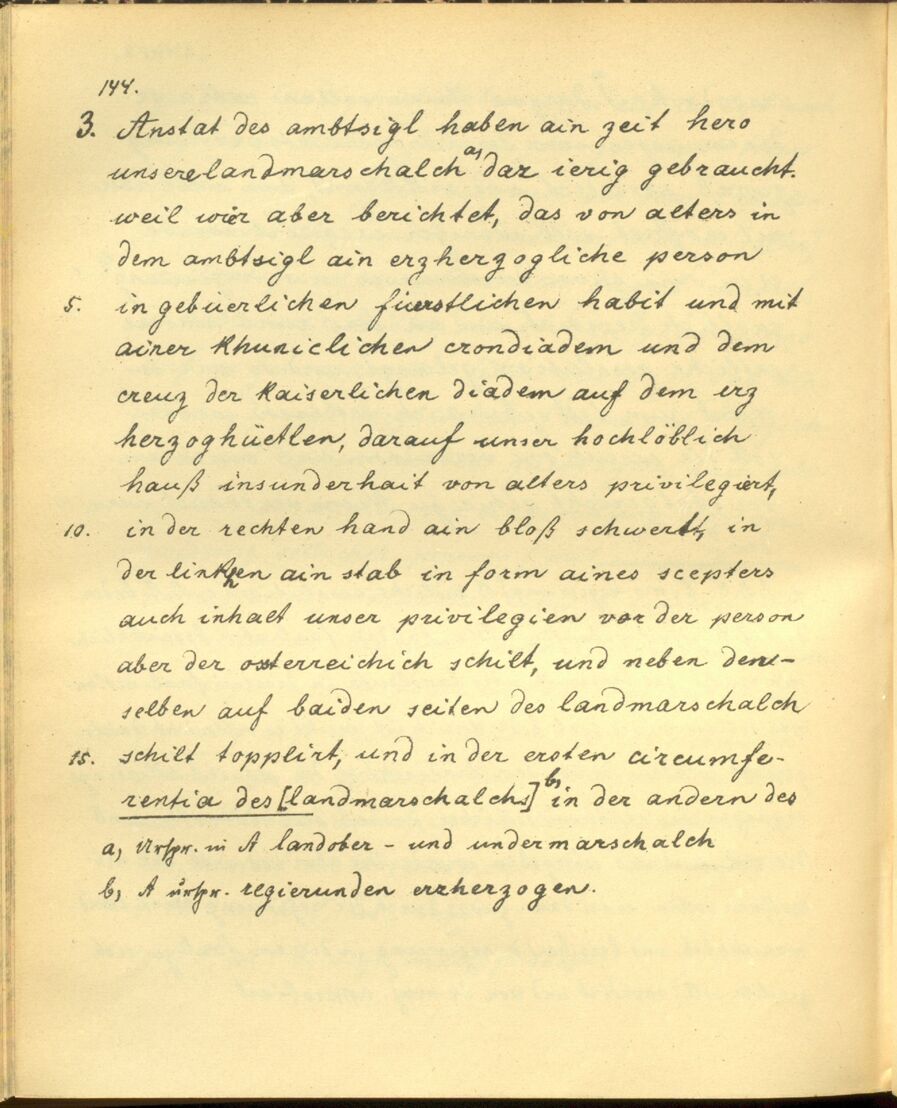 144.
3. Anstat des ambtsigl haben ain zeit hero
unsere landmarschalch a) daz ierig gebraucht.
weil wier aber berichtet, das von alters in
dem ambtsigl ain erzherzogliche person
5. in gebüerlichen füerstlichen habit und mit
ainer khuniclichen crondiadem und dem
creuz der kaiserlichen diadem auf dem erz
herzoghüetlen, darauf unser hochlöblich
hauß insunderhait von alters privilegiert,
10. in der rechten hand ain bloß schwertt, in
der linkhen ain stab in form aines scepters
auch inhalt unser privilegien vor der person
aber der osterreichich schilt, und neben dem-
selben auf baiden seiten des landmarschalch
15. schilt topplirt, und in der ersten circumfe-
rentia des [landmarschalchs] b) in der andern des
a, Urspr. in A landober- und undermarschalch
b, A urspr. regierunden erzherzogen.